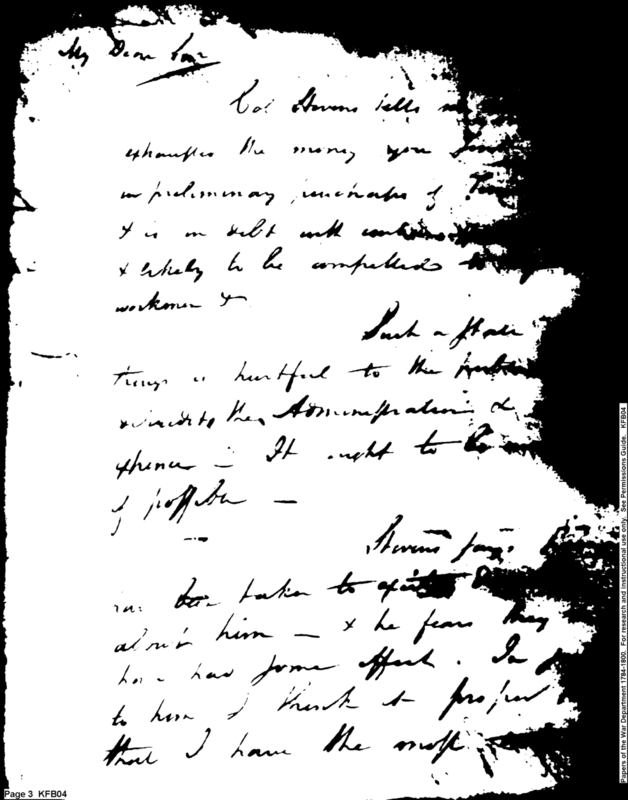 My Dear Sir
Col Stevens tells
exhausted the money you
in preliminary purchases of
& is in debt with
& likely to be compelled to
workmen &
Such a state
things is hurtful to the
the Administration &
expence — It ought to be
if possible —
Stevens says
been taken to
about him — & he fears they
have had some effect. In
to him I think it proper
that I have the most
Page 3 KFB04
Papers of the War Department 1784-1800. For research and instructional use only. See Permissions Guide. KFB04